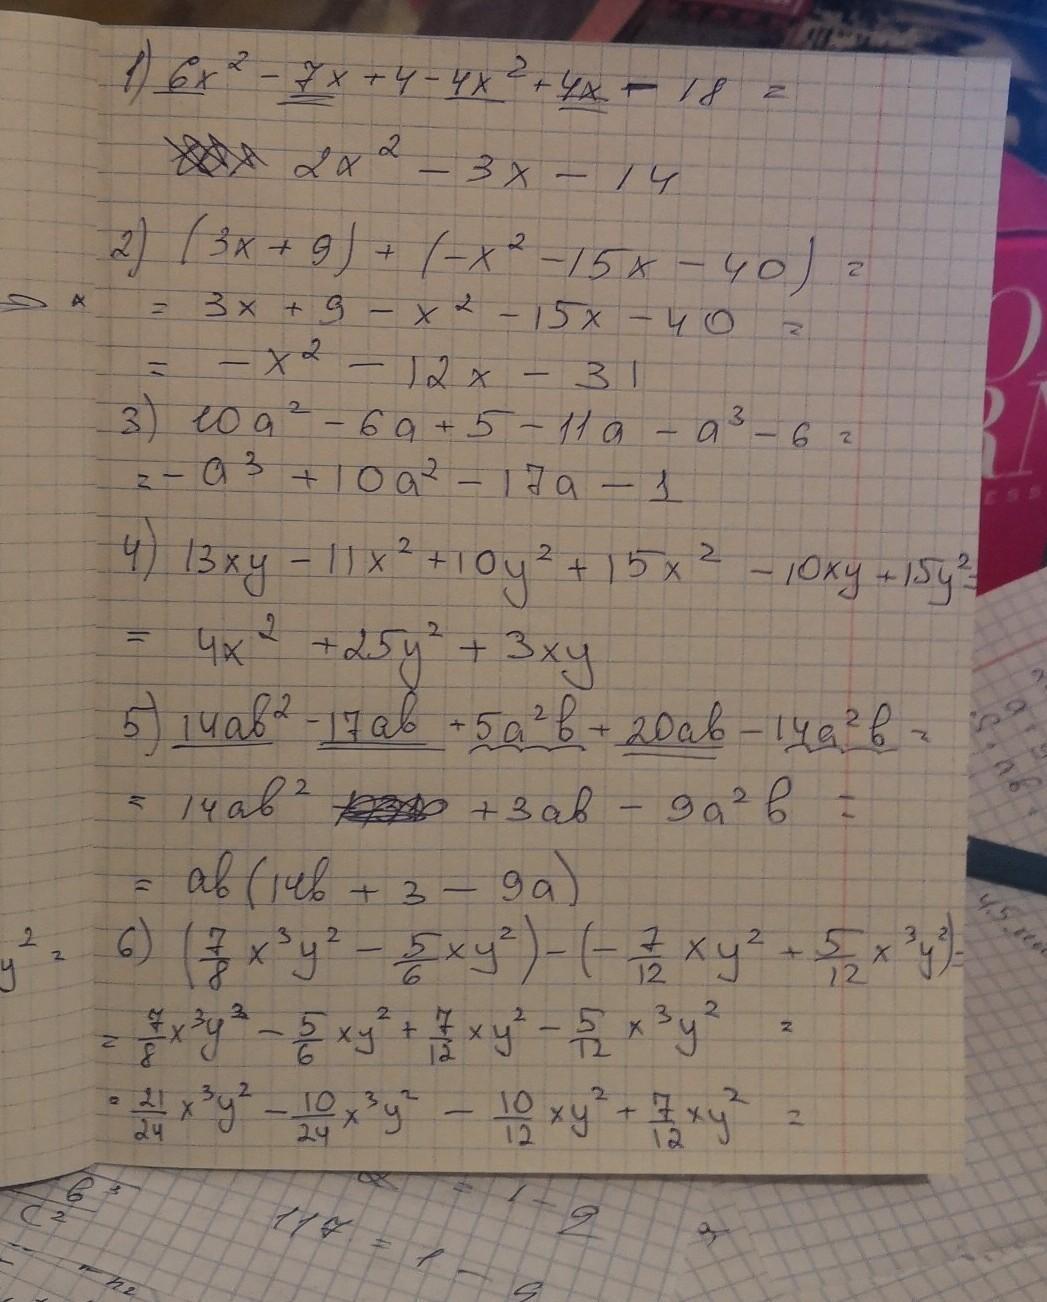 1) 6x² - 7x + 4 - 4x² + 4x - 18 =
2x² - 3x - 14
2) (3x + 9) + (-x² - 15x - 40) =
= 3x + 9 - x² - 15x - 40 =
= - x² - 12x - 31
3) 10a² - 6a + 5 - 11a - a³ - 6 =
= - a³ + 10a² - 17a - 1
4) 13xy - 11x² + 10y² + 15x² - 10xy + 15y² =
= 4x² + 25y² + 3xy
5) 14ab² - 17ab + 5a²b + 20ab - 14a²b =
= 14ab² + 3ab - 9a²b =
= ab(14b + 3 - 9a)
y² =
6) (7/8 x³y² - 5/6 xy²) - (- 7/12 xy² + 5/12 x³y²) =
= 7/8 x³y² - 5/6 xy² + 7/12 xy² - 5/12 x³y² =
= 21/24 x³y² - 10/24 x³y² - 10/12 xy² + 7/12 xy² =
= 1 -
117 = 1 -